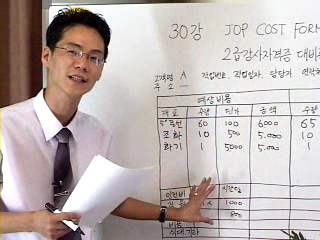 30강 JOP COST FORM
2급강사자격증 대비
고객명 A 작업번호, 작업일자, 담당자 연락
주소 —
예상비용
재료 수량 단가 금액 수량
60 100 6000 65
조화 10 500 5.000 10
화기 1 5000 5.000 1
인건비 시간당
1000
800